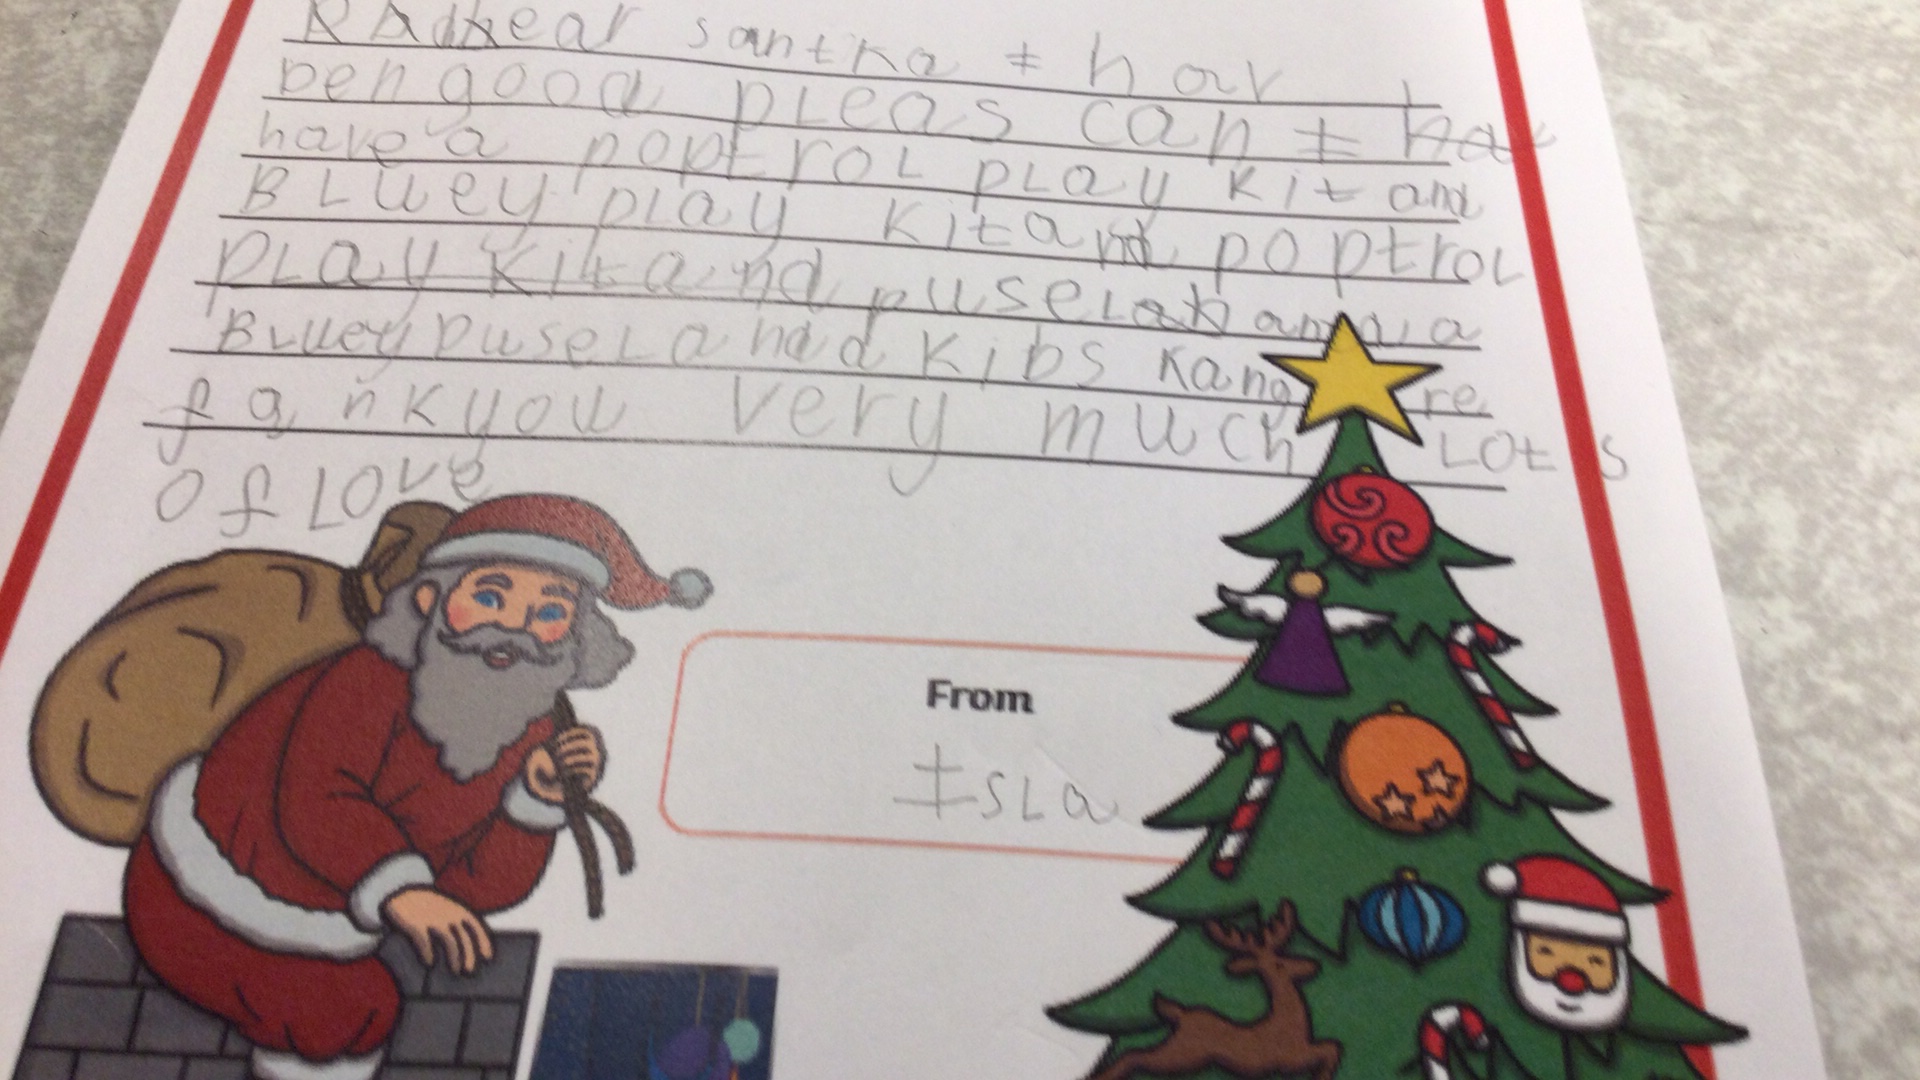 Dear santra I hav
ben good pleas can I
have a poptrol play kit and
Bluey play kit and poptrol
play kit and pusel and a
Bluey pusel and kibs kang re
fankyou very much Lots
of Love
From
Isla